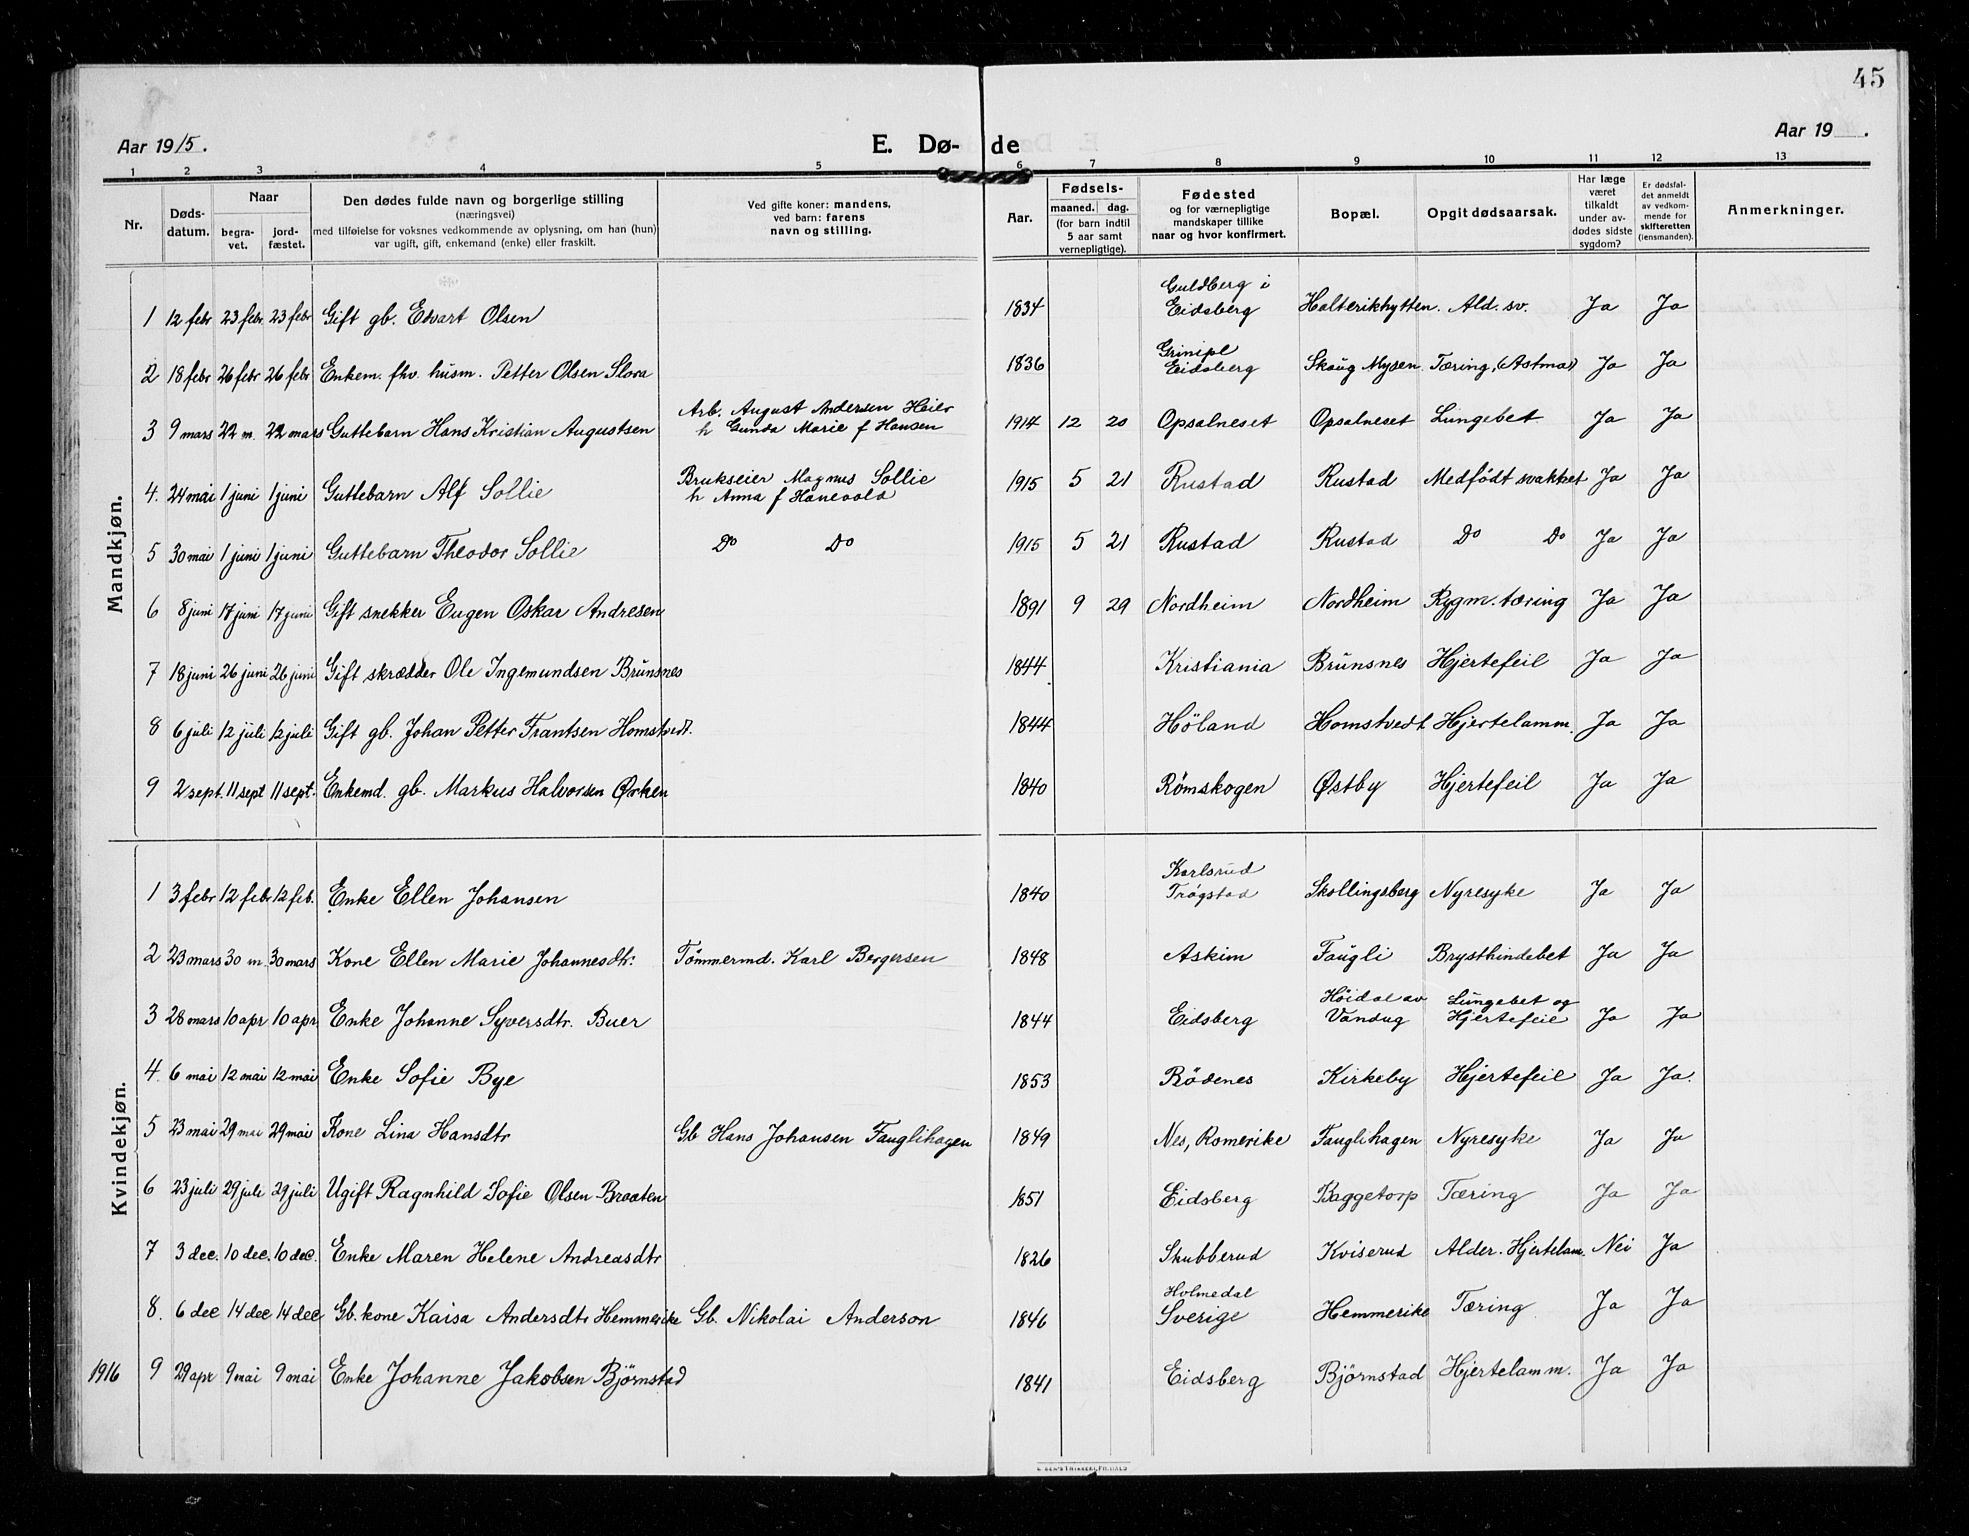 45
Aar 1915. E. Dø- de Aar 19 .
1 2 3 4 5 6 7 8 9 10 11 12 13
Nr. Døds-datum. Naar begra-vet. jord-fæstet. Den dødes fulde navn og borgerlige stilling (næringsvei) med tilføielse for voksnes vedkommende av oplysning, om han (hun) var ugift, gift, enkemand (enke) eller fraskilt. Ved gifte koner: mandens, ved barn: farens navn og stilling. Aar. Fødsels- maaned. dag. (for barn indtil 5 aar samt vernepligtige). Fødested og for værnepligtige mandskaper tillike naar og hvor konfirmert. Bopæl. Opgit dødsaarsak. Har læge været tilkaldt under av-dødes sidste sygdom? Er dødsfal-det anmeldt av vedkom-mende for skifteretten (lensmanden). Anmerkninger.
Mandkjøn.
1 12 febr 23 febr 23 febr Gift gb. Edvart Olsen 1834 Guldberg i Eidsberg Halterikhytten. Ald. sv. Ja Ja
2 18 febr 26 febr 26 febr Enkem. fhv. husm. Petter Olsen Slora 1836 Grinipl Eidsberg Skaug Mysen. Tæring, (Astma) Ja Ja
3 9 mars 22 m. 22 mars Guttebarn Hans Kristian Augustsen Arb. August Andersen Heier h Gunda Marie f Hansen 1914 12 20 Opsalneset Opsalneset Lungebet. Ja Ja
4. 24 mai 1 juni 1 juni Guttebarn Alf Sollie Brukseier Magnus Sollie h Anna f Hanevold 1915 5 21 Rustad Rustad Medfödt svakhet Ja Ja
5 30 mai 1 juni 1 juni Guttebarn Theodor Sollie Do Do 1915 5 21 Rustad Rustad Do Do Ja Ja
6 8 juni 17 juni 17 juni Gift snekker Eugen Oskar Andresen 1891 9 29 Nordheim Nordheim Rygm. tæring Ja Ja
7 18 juni 26 juni 26 juni Gift skrædder Ole Ingemundsen Brunsnes 1844 Kristiania Brunsnes Hjertefeil Ja Ja
8 6 juli 12 juli 12 juli Gift gb. Johan Petter Frantsen Homstvedt. 1844 Höland Homstvedt Hjertelamm. Ja Ja
9 2 sept. 11 sept 11 sept. Enkemd. gb. Markus Halvorsen Ørken 1840 Rømskogen Østby Hjertefeil Ja Ja
Kvindekjøn.
1 3 febr 12 febr 12 feb. Enke Ellen Johansen 1840 Karlsrud Trøgstad Skollingsberg Nyresyke Ja Ja
2 23 mars 30 m. 30 mars Kone Ellen Marie Johannesdtr. Tömmermd. Karl Bergersen 1848 Askim Faugli Brysthindebet Ja Ja
3 28 mars 10 apr 10 apr Enke Johanne Syversdtr. Buer 1844 Eidsberg Höidal av Vandug Lungebet og Hjertefeil Ja Ja
4. 6 mai 12 mai 12 mai Enke Sofie Bye 1853 Rödenes Kirkeby Hjertefeil Ja Ja.
5 23 mai 29 mai 29 mai Kone Lina Hansdtr Gb Hans Johansen Fauglihagen 1849 Nes, Romerike Fauglihagen Nyresyke Ja Ja
6 23 juli 29 juli 29 juli Ugift Ragnhild Sofie Olsen Braaten 1851 Eidsberg Baggetorp Tæring Ja Ja
7 3 dec. 10 dec. 10 dec. Enke Maren Helene Andreasdtr 1826 Skubberud Kviserud Alder. Hjertelam. Nei Ja
8. 6 dec 14 dec 14 dec Gb. kone Kaisa Andersdtr Hemmerike Gb. Nikolai Anderson 1846 Holmedal Sverige Hemmerike Tæring Ja Ja
1916 9 29 apr 9 mai 9 mai Enke Johanne Jakobsen Björnstad 1841 Eidsberg Björnstad Hjertelamm. Ja Ja